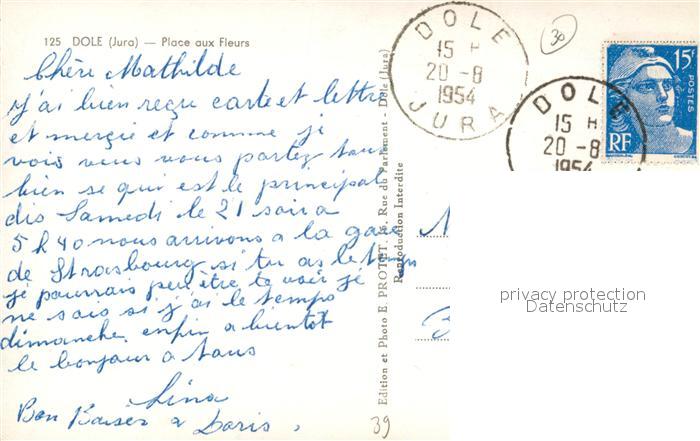 125 DOLE (Jura) — Place aux Fleurs
Chère Mathilde
j'ai bien reçue carte et lettre
et merçie et comme je
vois vous vous partez tous
bien se qui est le principal
dis Samedi le 21 soir a
5 h 40 nous arrivons a la gare
de Strasbourg si tu as le temps
je pourrais peu être te voir je
ne sais si j'ai le temps
dimanche enfin a bientot
le bonjour a tous
Lina
Bon Baiser a Doris.
Edition et Photo E. PROTET, 16, Rue du Parlement - Dole (Jura)
Reproduction Interdite
DOLE
15 H
20 -8
1954
JURA
DOLE
15 H
20 -8
1954
30
15F
POSTES
RF
privacy protection
Datenschutz
39